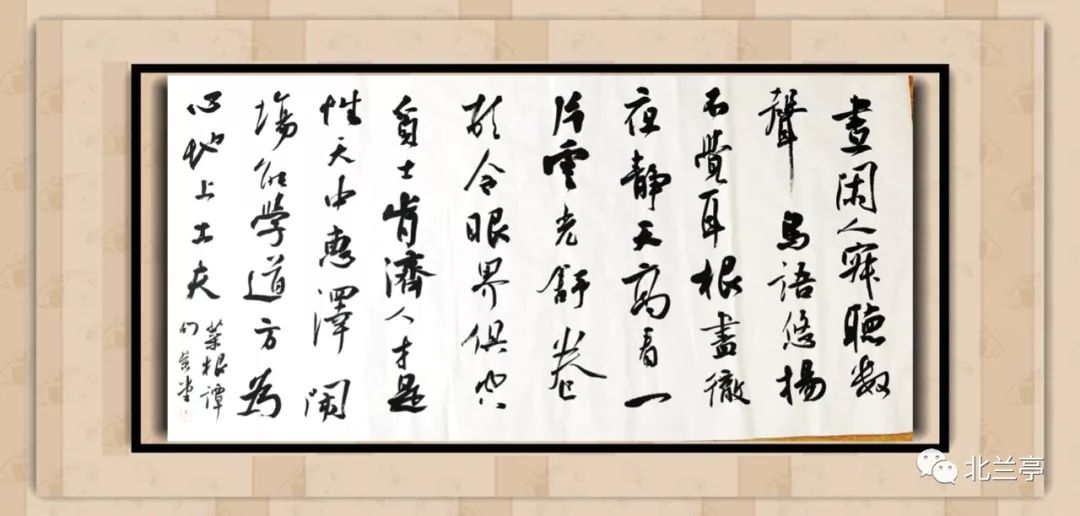 晝闲人寂聽数
聲鳥語悠楊
不覺耳根盡徹
夜靜天高看一
片雲光舒卷
頓令眼界俱空
貧士肯濟人才是
性天中惠澤闹
場能学道方為
心地上工夫
菜根谭
北兰亭